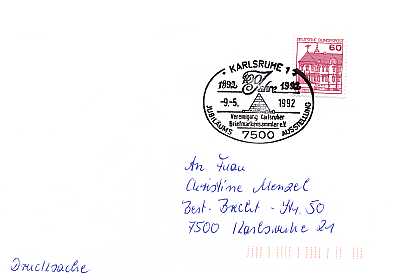 DEUTSCHE BUNDESPOST
60
KARLSRUHE 1
1892 100 Jahre 1992
-9.-5. 1992
Vereinigung Karlsruher
Briefmarkensammler e.V.
JUBILÄUMS AUSSTELLUNG
7500
An Frau
Christine Menzel
Bert-Brecht-Str. 50
7500 Karlsruhe 21
Drucksache